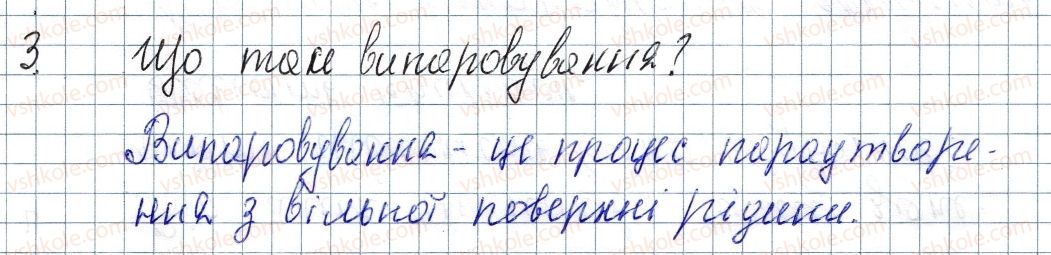 3. Що таке випаровування?
Випаровування - це процес пароутворе-
ння з вільної поверхні рідини.